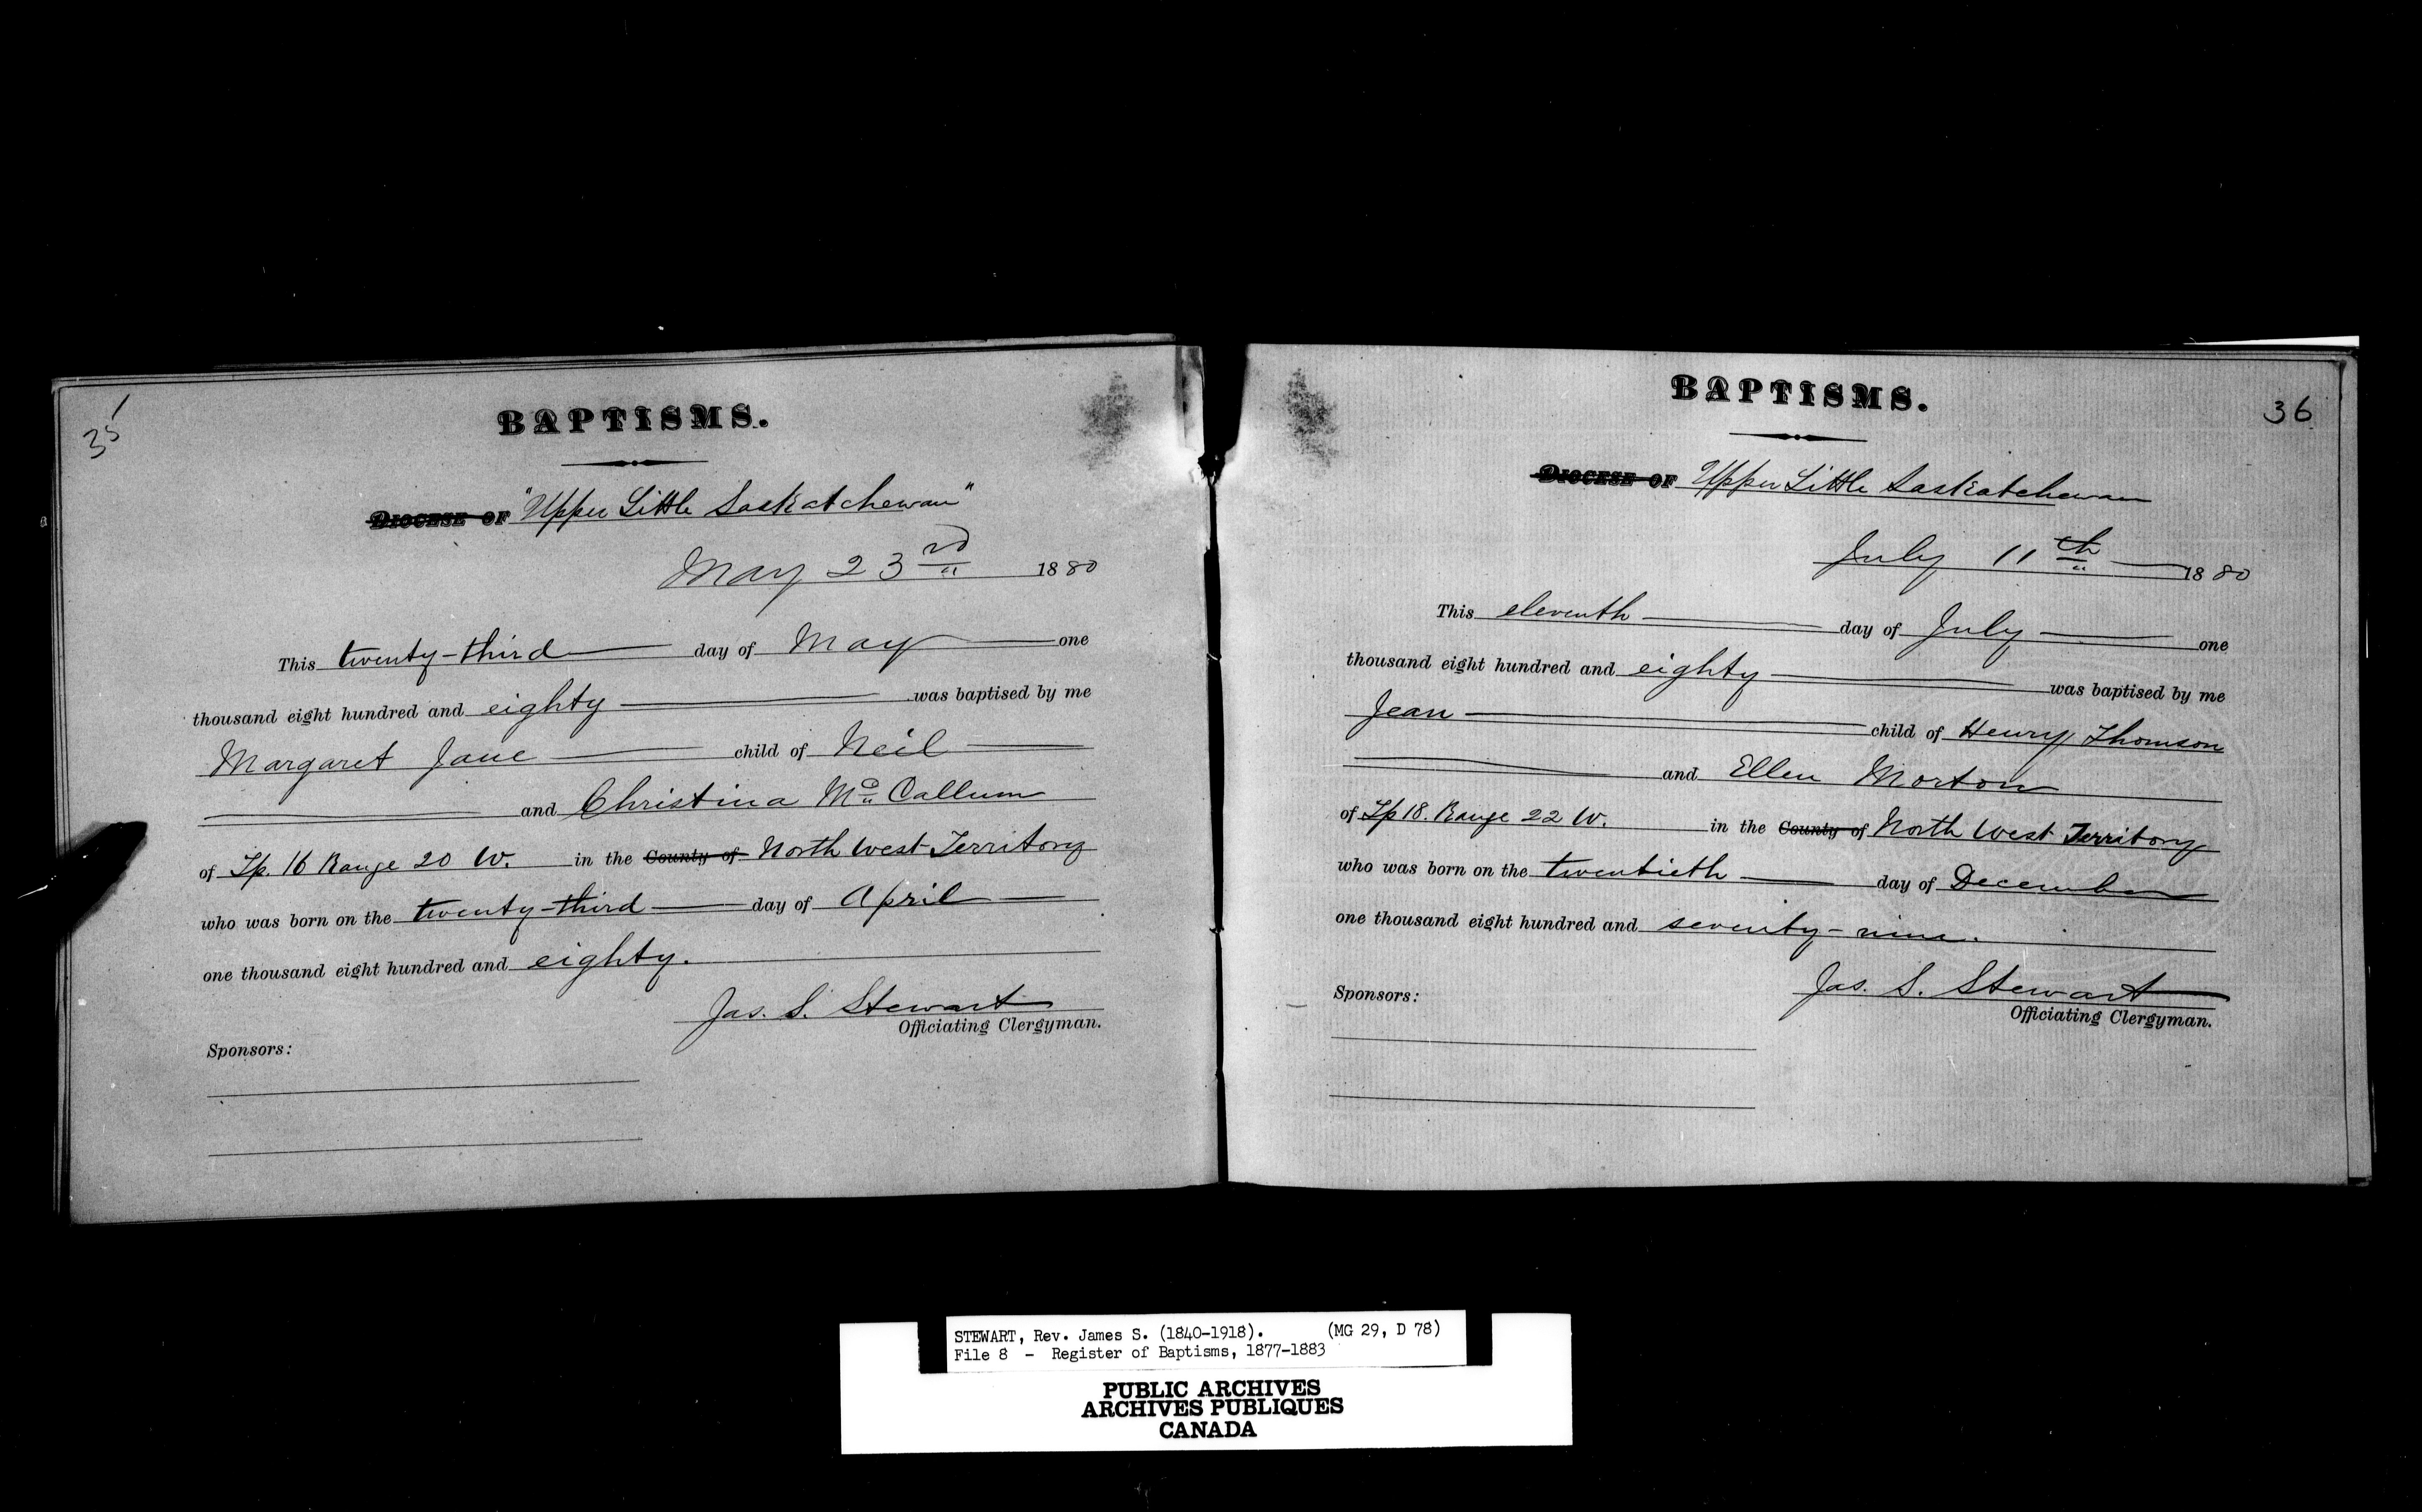 35
BAPTISMS.
DIOCESE OF "Upper Little Saskatchewan"
May 23rd 1880
This twenty-third day of May one
thousand eight hundred and eighty was baptised by me
Margaret Jane child of Neil
and Christina Mc Callum
of Tp. 16 Range 20 W. in the County of North West Territory
who was born on the twenty-third day of April
one thousand eight hundred and eighty.
Jas. S. Stewart
Officiating Clergyman.
Sponsors:
36
BAPTISMS.
DIOCESE OF Upper Little Saskatchewan
July 11th 1880
This eleventh day of July one
thousand eight hundred and eighty was baptised by me
Jean child of Henry Thomson
and Ellen Morton
of Tp 18. Range 22 W. in the County of North West Territory
who was born on the twentieth day of December
one thousand eight hundred and seventy-nine.
Jas. S. Stewart
Officiating Clergyman.
Sponsors:
STEWART, Rev. James S. (1840-1918). (MG 29, D 78)
File 8 - Register of Baptisms, 1877-1883
PUBLIC ARCHIVES
ARCHIVES PUBLIQUES
CANADA